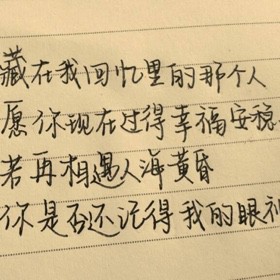 藏在我回忆里的那个人
愿你现在过得幸福安稳
若再相遇人海黄昏
你是否还记得我的眼神